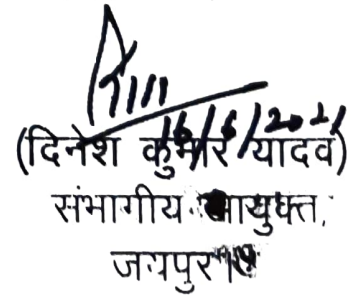 16/6/2021
(दिनेश कुमार यादव)
संभागीय आयुक्त,
जयपुर।